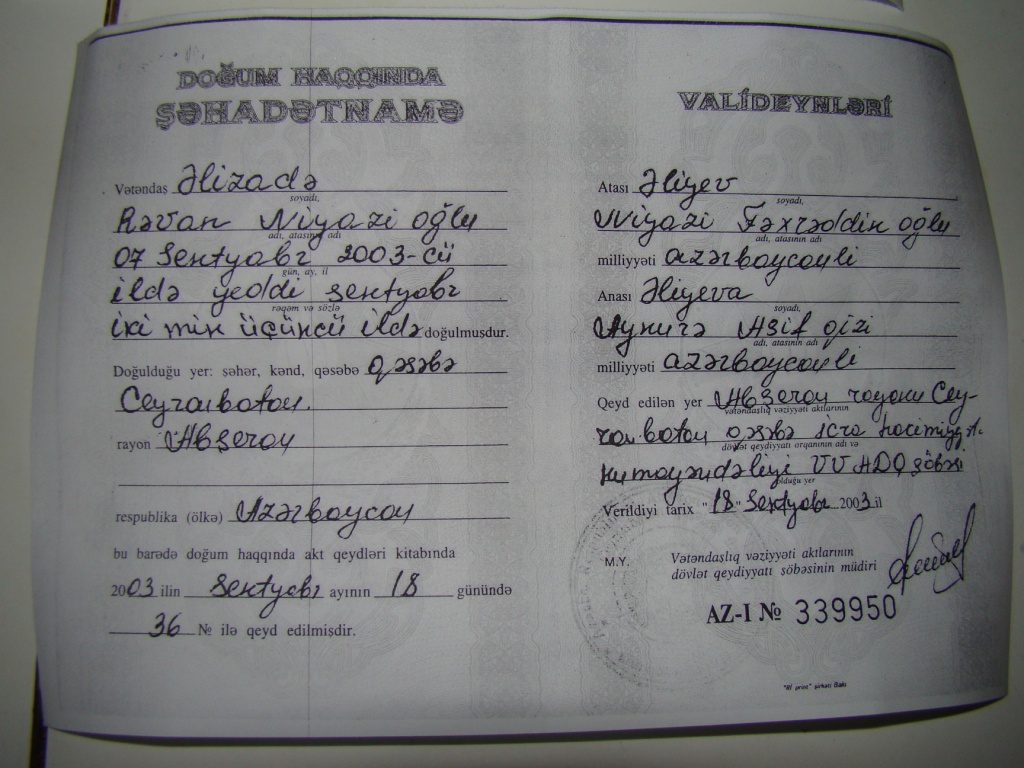 DOĞUM HAQQINDA
ŞƏHADƏTNAMƏ
Vətəndaş Əlizadə
soyadı,
Rəvan Niyazi oğlu
adı, atasının adı
07 Sentyabr 2003-cü
gün, ay, il
ildə yeddi sentyabr
rəqəm və sözlə
iki min üçüncü ildə doğulmuşdur.
Doğulduğu yer: şəhər, kənd, qəsəbə qəsəbə
Ceyranbatan.
rayon Abşeron
respublika (ölkə) Azərbaycan
bu barədə doğum haqqında akt qeydləri kitabında
2003 ilin Sentyabr ayının 18 günündə
36 № ilə qeyd edilmişdir.
VALİDEYNLƏRİ
Atası Əliyev
soyadı,
Niyazi Fəxrəddin oğlu
adı, atasının adı
milliyyəti azərbaycanlı
Anası Əliyeva
soyadı,
Aynurə Asif qızı
adı, atasının adı
milliyyəti azərbaycanlı
Qeyd edilən yer Abşeron rayonu Cey-
vətəndaşlıq vəziyyəti aktlarının
ranbatan qəsəbə icra hakimiyyət.
dövlət qeydiyyatı orqanının adı və
nümayəndəliyi VVADQ şöbəsi
olduğu yer
Verildiyi tarix "18" Sentyabr 2003 il
M.Y. Vətəndaşlıq vəziyyəti aktlarının
dövlət qeydiyyatı şöbəsinin müdiri
AZ-I № 339950
şirkəti Bakı